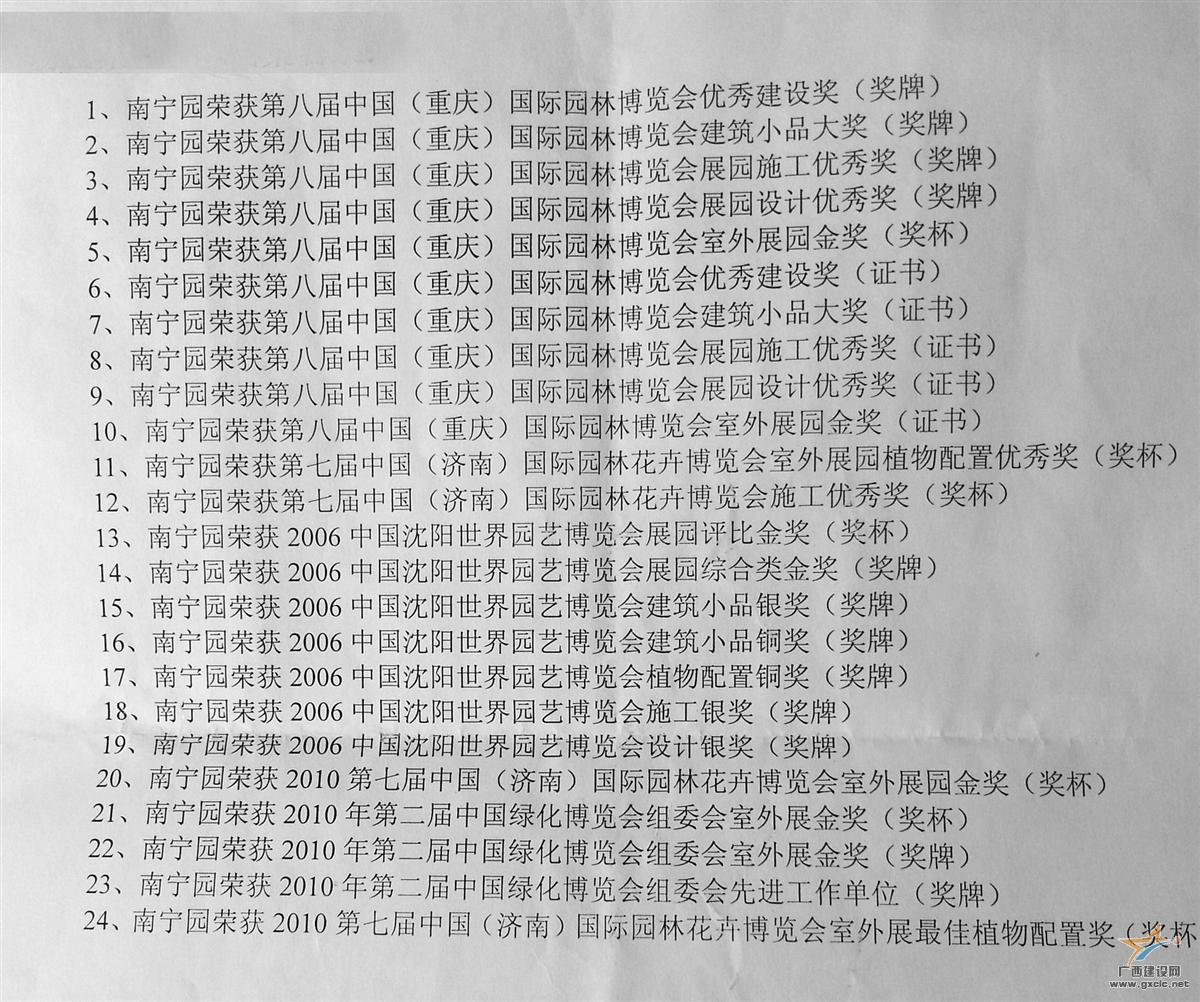 1、南宁园荣获第八届中国（重庆）国际园林博览会优秀建设奖（奖牌）
2、南宁园荣获第八届中国（重庆）国际园林博览会建筑小品大奖（奖牌）
3、南宁园荣获第八届中国（重庆）国际园林博览会展园施工优秀奖（奖牌）
4、南宁园荣获第八届中国（重庆）国际园林博览会展园设计优秀奖（奖牌）
5、南宁园荣获第八届中国（重庆）国际园林博览会室外展园金奖（奖杯）
6、南宁园荣获第八届中国（重庆）国际园林博览会优秀建设奖（证书）
7、南宁园荣获第八届中国（重庆）国际园林博览会建筑小品大奖（证书）
8、南宁园荣获第八届中国（重庆）国际园林博览会展园施工优秀奖（证书）
9、南宁园荣获第八届中国（重庆）国际园林博览会展园设计优秀奖（证书）
10、南宁园荣获第八届中国（重庆）国际园林博览会室外展园金奖（证书）
11、南宁园荣获第七届中国（济南）国际园林花卉博览会室外展园植物配置优秀奖（奖杯）
12、南宁园荣获第七届中国（济南）国际园林花卉博览会施工优秀奖（奖杯）
13、南宁园荣获 2006 中国沈阳世界园艺博览会展园评比金奖（奖杯）
14、南宁园荣获 2006 中国沈阳世界园艺博览会展园综合类金奖（奖牌）
15、南宁园荣获 2006 中国沈阳世界园艺博览会建筑小品银奖（奖牌）
16、南宁园荣获 2006 中国沈阳世界园艺博览会建筑小品铜奖（奖牌）
17、南宁园荣获 2006 中国沈阳世界园艺博览会植物配置铜奖（奖牌）
18、南宁园荣获 2006 中国沈阳世界园艺博览会施工银奖（奖牌）
19、南宁园荣获 2006 中国沈阳世界园艺博览会设计银奖（奖牌）
20、南宁园荣获 2010 第七届中国（济南）国际园林花卉博览会室外展园金奖（奖杯）
21、南宁园荣获 2010 年第二届中国绿化博览会组委会室外展金奖（奖杯）
22、南宁园荣获 2010 年第二届中国绿化博览会组委会室外展金奖（奖牌）
23、南宁园荣获 2010 年第二届中国绿化博览会组委会先进工作单位（奖牌）
24、南宁园荣获 2010 第七届中国（济南）国际园林花卉博览会室外展最佳植物配置奖（奖杯
广西建设网
www.gxcic.net